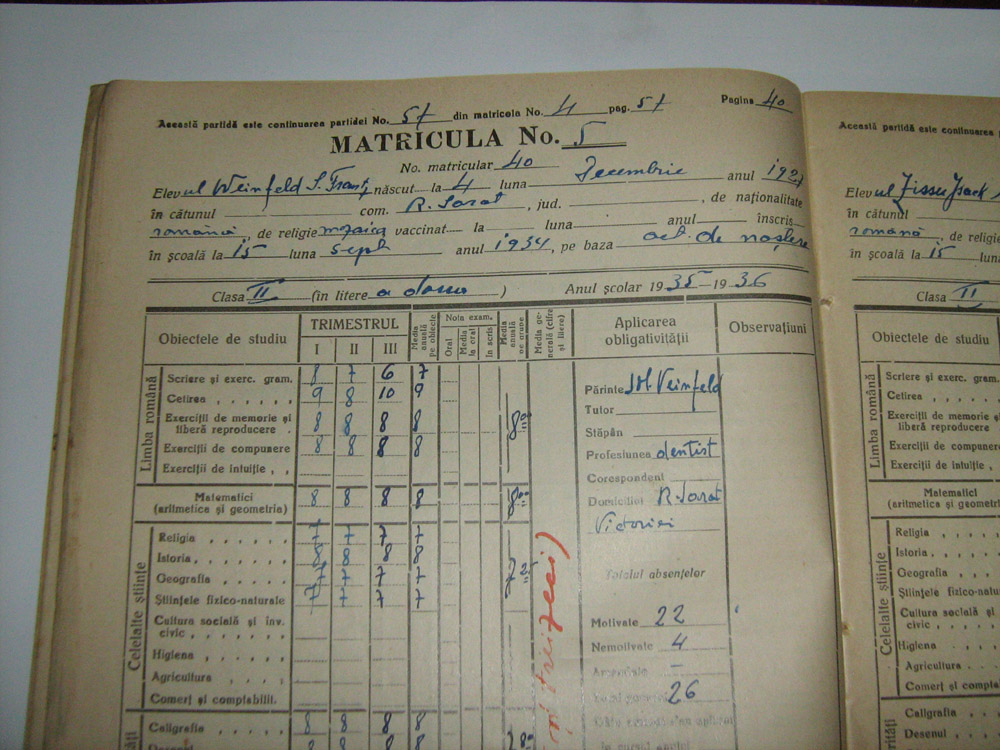 Această partidă este continuarea partidei No. 57 din matricola No. 4 pag. 57 Pagina 40
MATRICULA No. 5
No. matricular 40
Elevul Weinfeld S. Frantz născut la 4 luna Decembrie anul 192
în cătunul com. R. Sarat, jud. , de naționalitate
română, de religie mozaica vaccinat la luna anul înscris
în școală la 15 luna sept anul 1934, pe baza act. de naștere
Clasa II (în litere a doua) Anul școlar 1935-1936
Obiectele de studiu TRIMESTRUL Media anuală pe obiecte Nota exam. Media anuală pe grupe Media generală (cifre și litere) Aplicarea obligativității Observațiuni
I II III Oral Media la oral în scris
Limba română
Scriere și exerc. gram. 8 7 6 7
Cetirea 9 8 10 9
Exerciții de memorie și liberă reproducere 8 8 8 8 8 00
Exerciții de compunere 8 8 8 8
Exerciții de intuiție
Matematici (aritmetica și geometria) 8 8 8 8 8 00
Celelalte științe
Religia 7 7 7 7
Istoria 8 8 8 8
Geografia 7 7 7 7 7 25
Științele fizico-naturale 7 7 7 7
Cultura socială și înv. civic
Higiena
Agricultura
Comerț și comptabilit.
Caligrafia 8 8 8 8
Desenul 8 8 8 8 8
Părinte Weinfeld
Tutor
Stăpân
Profesiunea dentist
Corespondent
Domiciliul R. Sarat
Victoriei
Totalul absențelor
Motivate 22
Nemotivate 4
Amendate –
26
în cursul anului
Această partidă este continuarea
Elevul Zissu Isack
în cătunul
română, de religie
în școală la 15 luna
Clasa II
Obiectele de studiu
Limba română
Scriere și exerc. gram.
Cetirea
Exerciții de memorie și liberă reproducere
Exerciții de compunere
Exerciții de intuiție
Matematici (aritmetica și geometria)
Celelalte științe
Religia
Istoria
Geografia
Științele fizico-naturale
Cultura socială și civic
Higiena
Agricultura
Comerț și compta
Caligrafia
Desenul